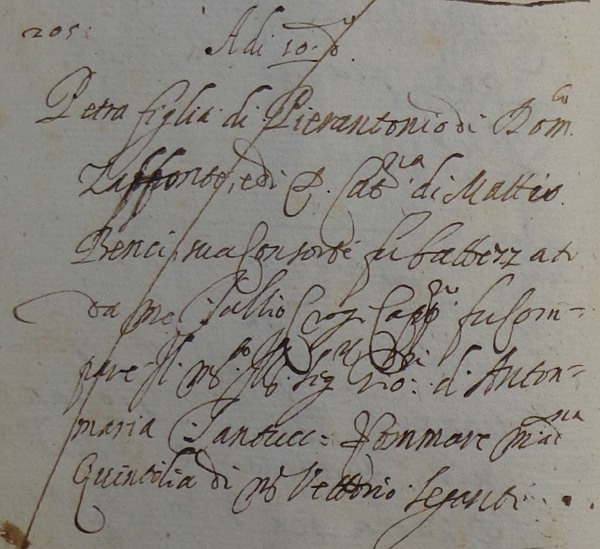 205.
Adi 10. d.º
Petra figlia di Pierantonio di Dom.co
Zaffonte, e di D. Cat.na di Mattio
Benci sua Consorte fu battezzata
da me Tullio Capp.no fu Com=
pare Il Sig. Gio: d. Anton=
maria Santucci= Commare Mad.na
Quintilia di Vettorio